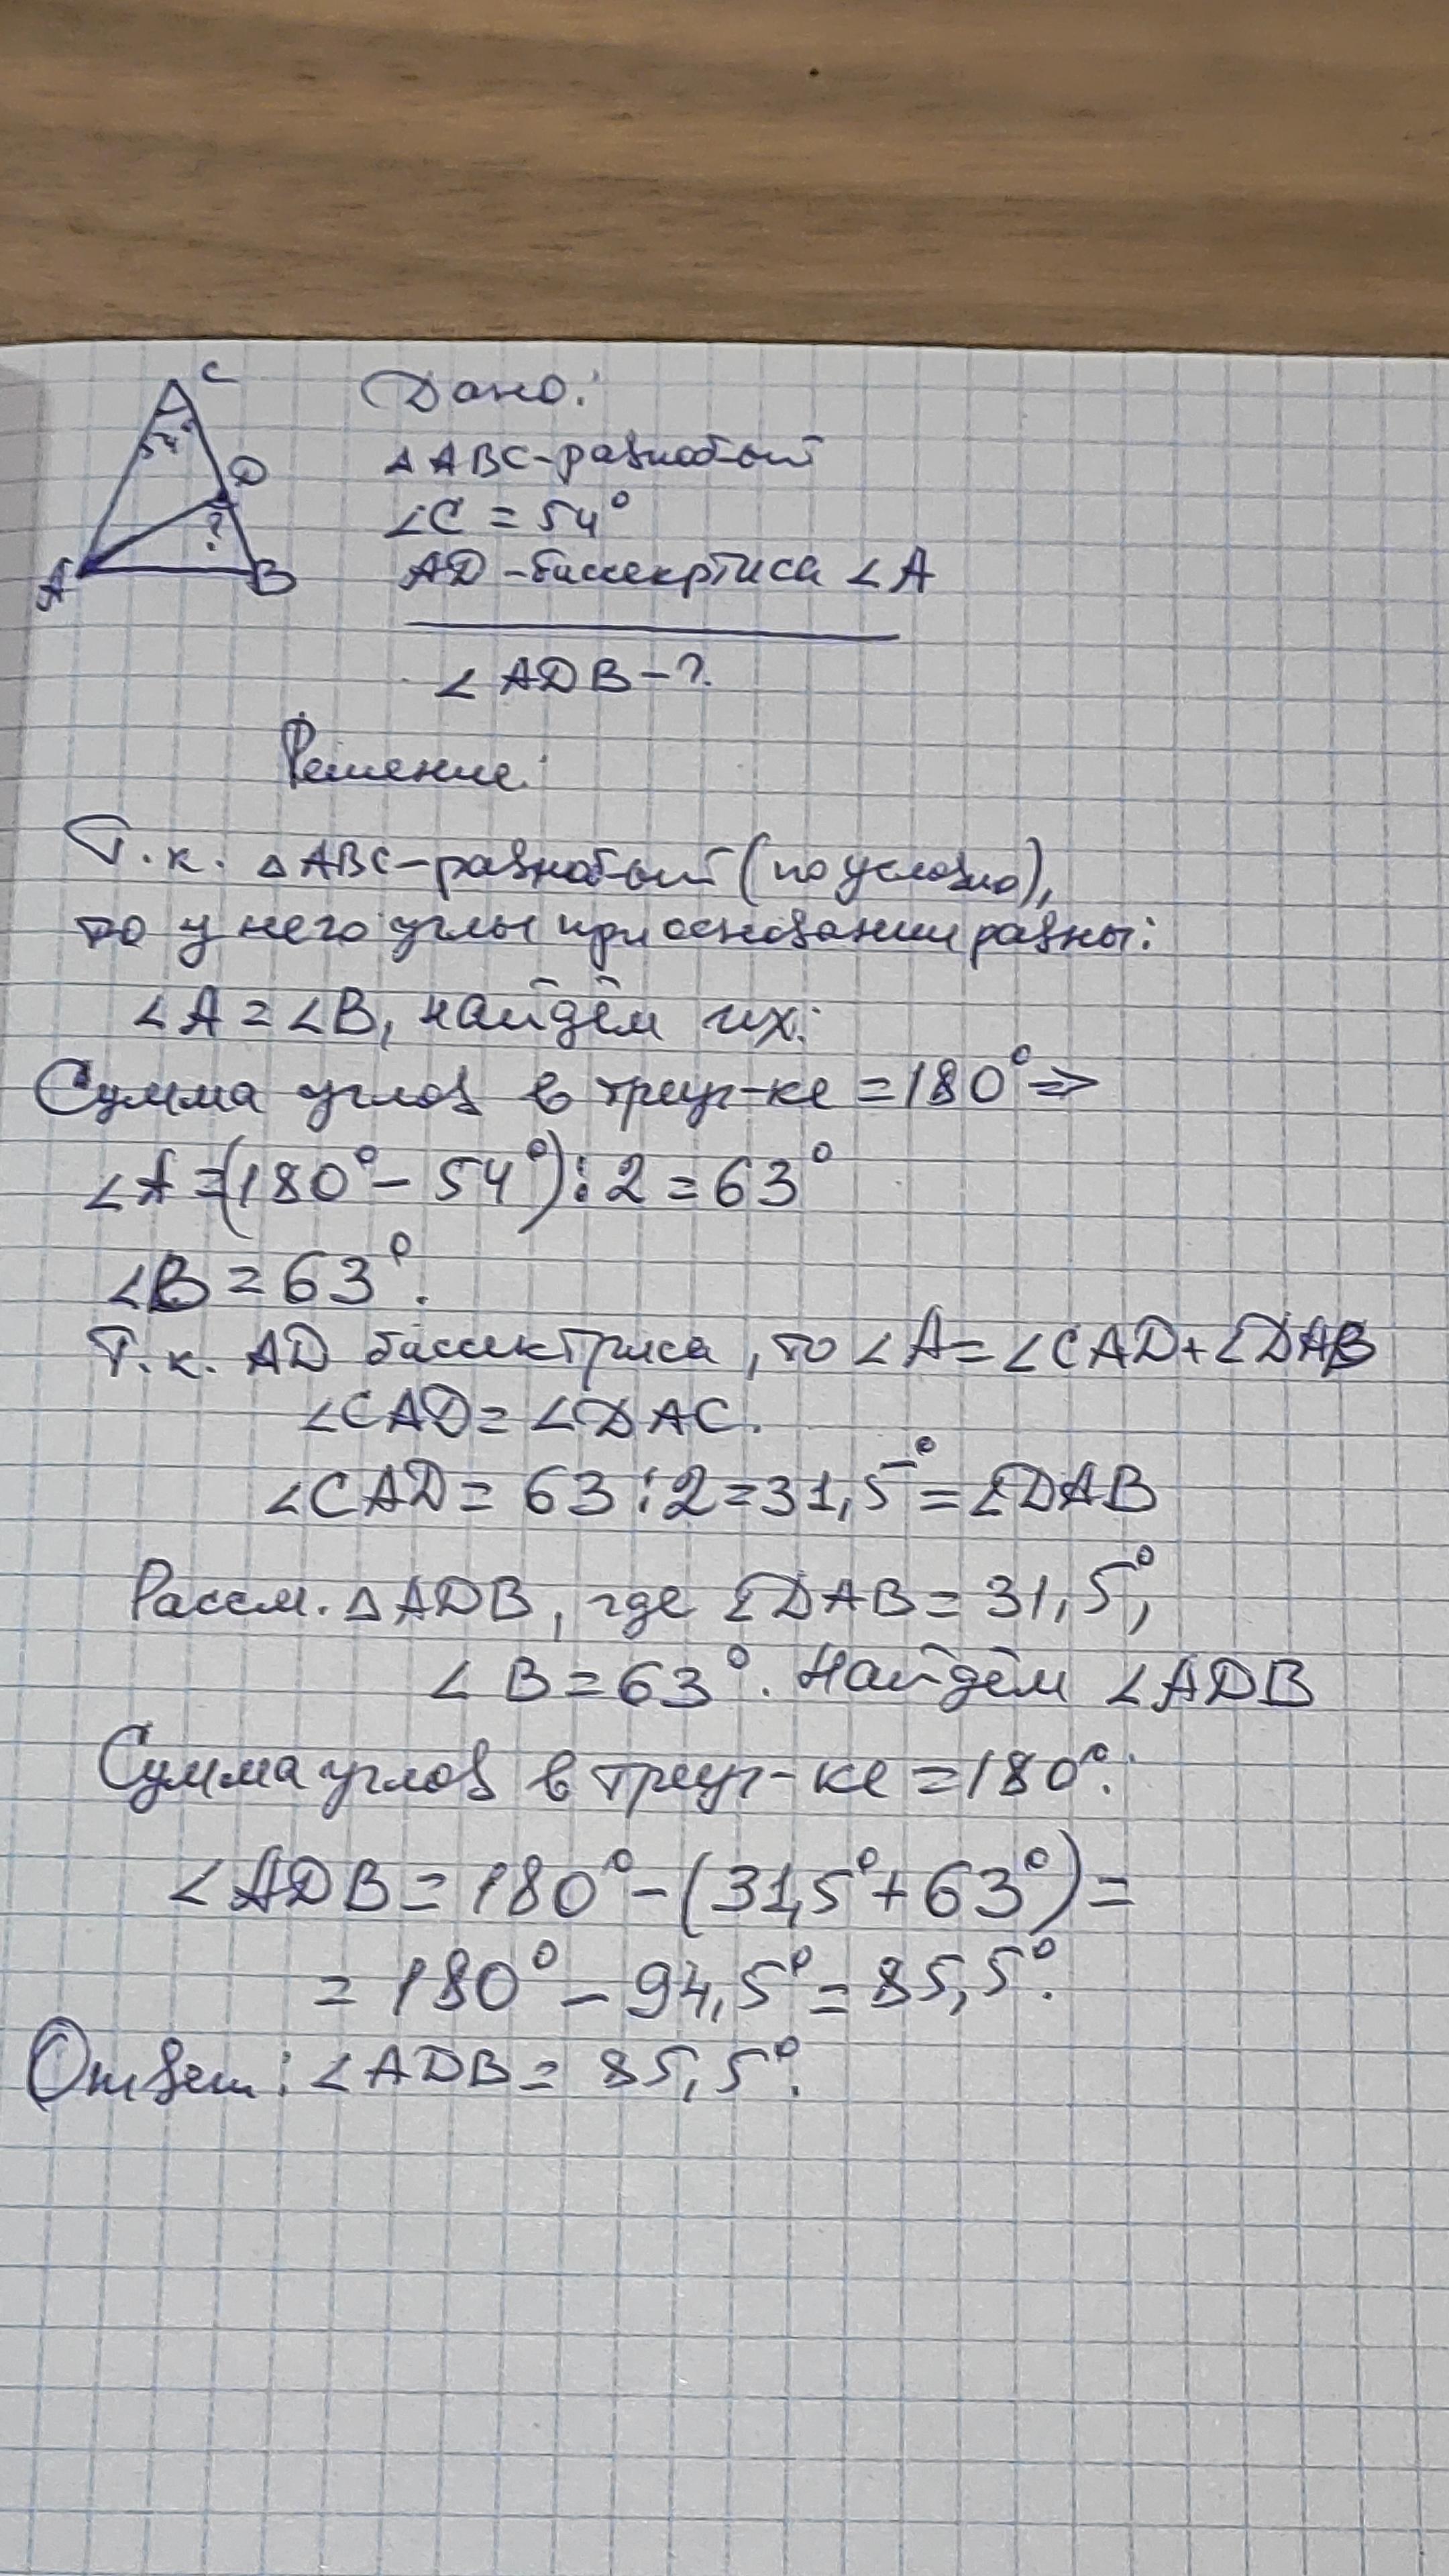 C
54°
D
?
A
B
Дано:
△ABC-равнобый
∠C = 54°
AD-биссекртиса ∠A
∠ADB-?
Решение:
Т.к. △ABC-равнобый (по условию),
то у него углы при основании равны:
∠A = ∠B, найдём их:
Сумма углов в треуг-ке = 180° ⇒
∠A = (180° - 54°) : 2 = 63°
∠B = 63°.
Т.к. AD биссектриса, то ∠A = ∠CAD + ∠DAB
∠CAD = ∠DAC.
∠CAD = 63 : 2 = 31,5° = ∠DAB
Рассм. △ADB, где ∠DAB = 31,5°,
∠B = 63°. Найдём ∠ADB
Сумма углов в треуг-ке = 180°:
∠ADB = 180° - (31,5° + 63°) =
= 180° - 94,5° = 85,5°.
Ответ: ∠ADB = 85,5°.